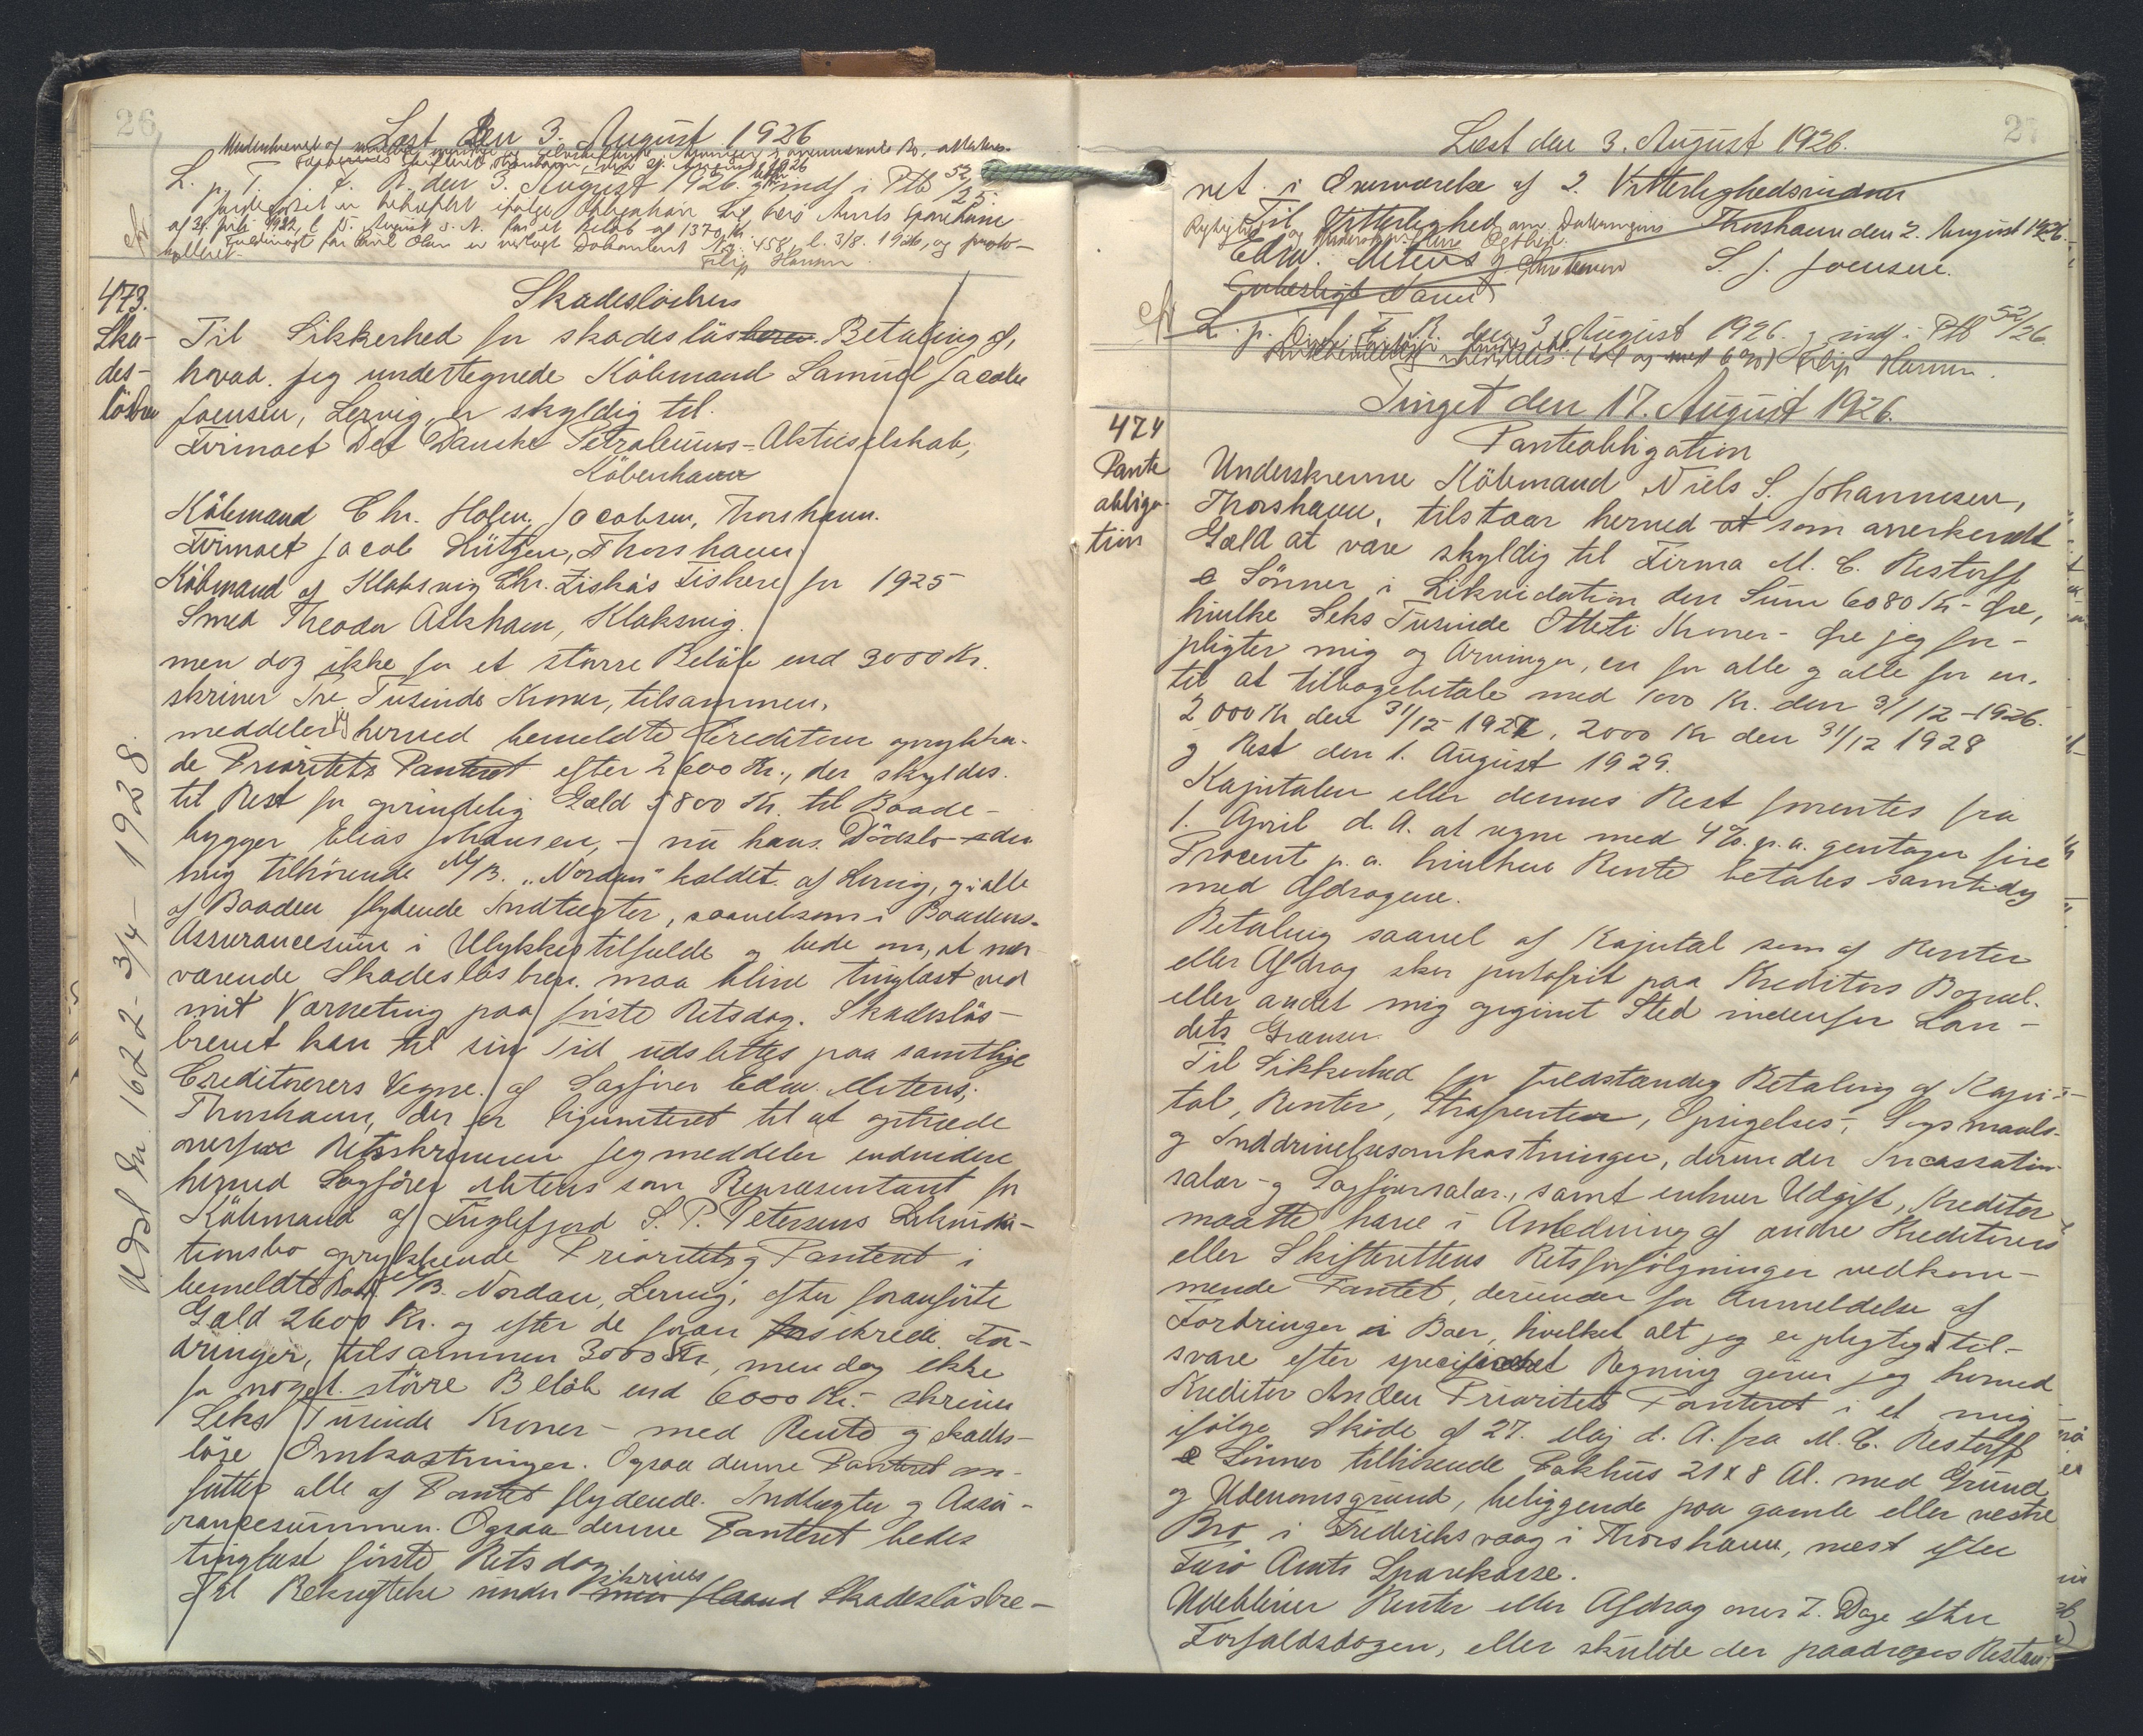 26
Læst den 3. August 1926
L. p. T. f. R. den 3. August 1926. og indf i Ptb 52/25.
af 24 Juli 1922, l. 15. August s. A. for et Beløb af 1370 Kr.
Fuldmagt for Emil Olsen er vedlagt Dokument No. 458, l. 3/8. 1926, og proto-
kolleret. Filip Hansen
473.
Ska-
des-
løsbrev
Skadesløsbrev
Til Sikkerhed for skadesløs Betaling af,
hvad jeg undertegnede Købmand Samuel Jacob
Joensen, Lervig er skyldig til.
Firmaet Det Danske Petroleums-Aktieselskab,
København
Købmand Chr. Holm Jacobsen, Thorshavn.
Firmaet Jacob Lützen, Thorshavn
Købmand af Klaksvig Chr. Ziskas Fiskeri for 1925
Smed Theodor Askham, Klaksvig.
men dog ikke for et større Beløb end 3000 Kr.
skriver Tre Tusinde Kroner, tilsammen,
meddeler jeg herved bemeldte Creditorer oprykken-
de Prioritets Panteret efter 2600 Kr., der skyldes
til Rest for oprindelig Gæld 5800 Kr. til Baade-
bygger Elias Johansen, - nu hans Dødsbo - i den
mig tilhørende M/B. "Nordan" kaldet af Lervig, og i alle
af Baaden flydende Indtægter, saavelsom i Baadens
Assurancesum i Ulykkestilfælde og bede om, at nær-
værende Skadesløsbrev maa blive tinglæst ved
mit Værneting paa første Retsdag. Skadesløs-
brevet kan til sin Tid udslettes paa samtlige
Creditorers Vegne af Sagfører Edw. Mitens,
Thorshavn, der er legitimeret til at optræde
overfor Retsskriveren. Jeg meddeler endvidere
herved Sagfører Mitens som Repræsentant for
Købmand af Fuglefjord S. P. Petersens Likvida-
tionsbo oprykkende Prioritets og Panteret i
bemeldte Baad M/B. Nordan, Lervig, efter foranførte
Gæld 2600 Kr. og efter de foran beskrevne For-
dringer, tilsammen 3000 Kr, men dog ikke
for noget større Beløb end 6000 Kr. skriver
Seks Tusinde Kroner - med Rente og skades-
løse Omkostninger. Ogsaa denne Panteret om-
fatter alle af Pantet flydende Indtægter og Assu-
rancesummen. Ogsaa denne Panteret bedes
tinglæst første Retsdag
Til Bekræftelse underskrives Skadesløsbre-
Udsl En 1622 - 3/4 - 1928.
27
Læst den 3. August 1926.
vet i Overværelse af 2. Vitterlighedsvidner
Thorshavn den 2. August 1926.
Til Vitterlighed om Dateringens
Rigtighed og Underskriftens Ægthed.
S. J. Joensen.
Edw. Mitens
L. p. T. f. R. den 3 August 1926. og indf i Ptb 52/26.
Filip Hansen.
Tinget den 17. August 1926.
474
Pante
obliga-
tion
Panteobligation
Underskrevne Købmand Niels S. Johannesen,
Thorshavn, tilstaar herved at som anerkendt
Gæld at være skyldig til Firma M. C. Restorff
& Sønner i Likvidation den Sum 6080 Kr - Øre,
hvilke Seks Tusinde Otteti Kroner - Øre jeg for-
pligter mig og Arvinger, en for alle og alle for en,
til at tilbagebetale med 1000 Kr. den 31/12 - 1926.
2000 Kr den 31/12 1927, 2000 Kr den 31/12 1928
og Rest den 1. August 1929.
Kapitalen eller dennes Rest forrentes fra
1. April d. A. at regne med 4 % p. a. gentager fire
Procent p. a. hvilken Rente betales samtidig
med Afdragene.
Betaling saavel af Kapital som af Renter
eller Afdrag sker portofrit paa Kreditors Bopæl
eller andet mig opgivet Sted indenfor Lan-
dets Grænser.
Til Sikkerhed for fuldstændig Betaling af Kapi-
tal, Renter, Strafrenter, Opsigelses-, Søgsmaals-
og Inddrivelsesomkostninger, derunder Incassation
salær og Sagførersalær, samt enhver Udgift, Kreditor
maatte have i Anledning af andre Kreditorers
eller Skifterettens Retsforfølgninger vedkom-
mende Pantet, derunder for Anmeldelse af
Fordringer i Boer, hvilket alt jeg er pligtig at til-
svare efter specificeret Regning giver jeg herved
Kreditor Anden Prioritets Panteret i et mig
ifølge Skøde af 27. Maj d. A. fra M. C. Restorff
& Sønner tilhørende Pakhus 21 x 8 Al. med Grund
og Udenomsgrund, beliggende paa gamle eller vestre
Bro i Frederiksvaag i Thorshavn, næst efter
Færø Amts Sparekasse.
Udebliver Renter eller Afdrag over 7. Dage efter
Forfaldsdagen, eller skulde der paadrages Restan-